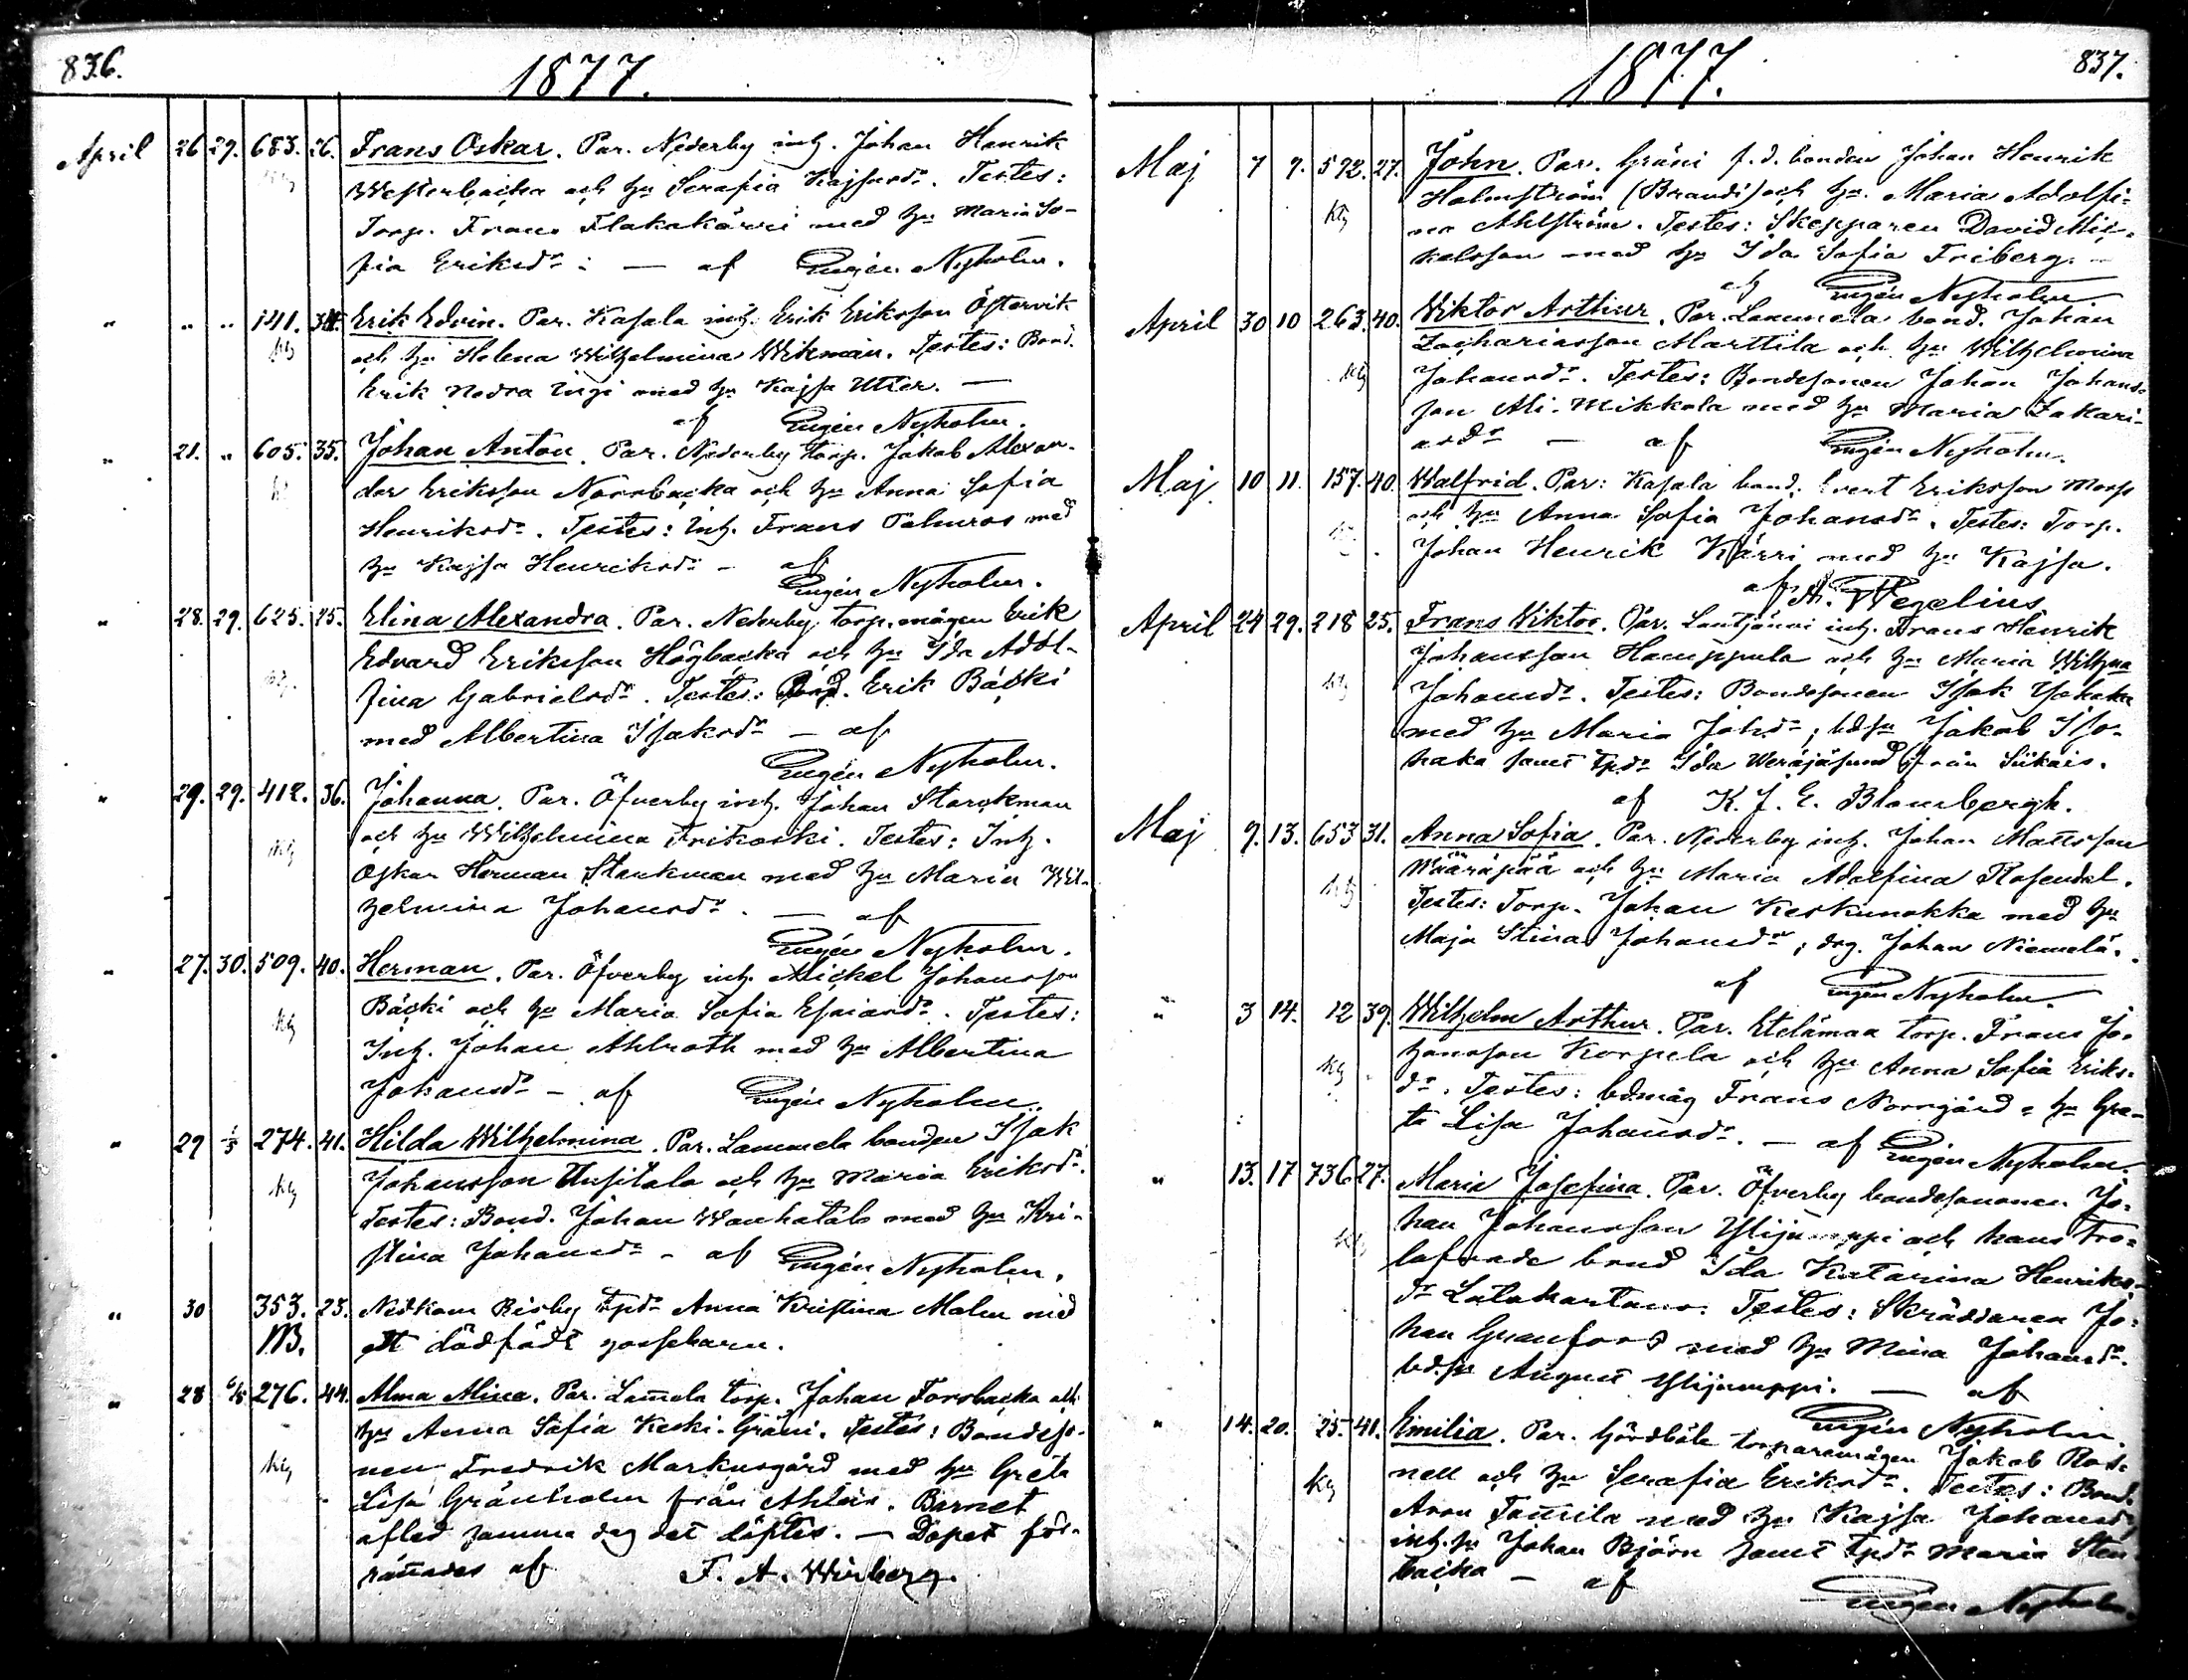 836.
1877.
April 26 29. 683. 26. Frans Oskar. Par. Nederby inh. Johan Henrik
Westerbacka och hu Serafia Kajsasdr. Testes:
Torp. Frans Flakakärri med hu Maria So-
fia Eriksdr: — af Eugén Nyholm.
" " " 141. Erik Edvin. Par. Kasala inh. Erik Eriksson Östervik
kg och hu Helena Wilhelmina Wikman. Testes: Bond.
Erik Nedra med hu Kajsa Utter. —
af Eugén Nyholm.
" 21. " 605. 35. Johan Anton. Par. Nederby torp. Jakob Alexan-
der Eriksson Norrbacka och hu Anna Sofia
Henriksdr. Testes: Inh. Frans Palmros med
hu Kajsa Henriksdr: - af
Eugén Nyholm.
" 28. 29. 625. 25. Elina Alexandra. Par. Nederby torp.mågen Erik
Edvard Eriksson Högbacka och hu Ida Adol-
fina Gabrielsdr. Testes: Erik Bäcki
med Albertina Isaksdr — af
Eugén Nyholm.
" 29. 29. 412. 36. Johanna. Par. Öfverby inh. Johan Starckman
kg och hu Wilhelmina Frikoski. Testes: Inh.
Oskar Herman Starckman med hu Maria Wil-
helmina Johansdr. — af
Eugén Nyholm.
" 27. 30. 509. 40. Herman. Par. Öfverby inh. Mickel Johansson
Bäcki och hu Maria Sofia Esaiasdr. Testes:
kg Inh. Johan Ahlroth med hu Albertina
Johansdr - af Eugén Nyholm.
" 29 1/5 274. 41. Hilda Wilhelmina. Par. Lammela bonden Isak
kg Johansson Uusitalo och hu Maria Eriksdr.
Testes: Bond. Johan Wanhatalo med hu Kri-
stina Johansdr - af Eugén Nyholm.
" 30 353. 23. Nedkom Risby tpdr Anna Kristina Malm med
NB. ett dödfödt gossebarn.
" 28 6/5 276. 44. Alma Alina. Par. Lam̄ela torp. Johan Forsbacka och
hu Anna Sofia Keski-Gräni. Testes: Bondeso-
kg nen Fredrik Markusgård med hu Greta
Lisa Gränholm från Ahlais. Barnet
afled samma dag det döptes. — Dopet för-
rättades af F. A. Wirberg.
1877.
837.
Maj 7 9. 592. 27. John. Par. Gräni f.d. bonden Johan Henrik
Holmström (Brandi) och hu. Maria Adolfi-
kg na Ahlström. Testes: Skepparen David Mic-
kelsson med hu Ida Sofia Friberg. —
af Eugén Nyholm.
April 30 10 263. 40. Wiktor Arthur. Par. Lammela bond. Johan
Zachariasson Marttila och hu Wilhelmina
kg Johansdr. Testes: Bondesonen Johan Johans-
son Ali-Mikkola med hu Maria Zakari-
asdr — af Eugén Nyholm.
Maj 10 11. 157. 40. Walfrid. Par: Kasala bond. Evert Eriksson
och hu Anna Sofia Johansdr. Testes: Torp.
Johan Henrik Kärri med hu Kajsa.
af A. Wegelius
April 24 29. 218 25. Frans Wiktor. Par. Lautjärvi inh. Frans Henrik
Johansson Hamppula och hu Maria Wilhna
kg Johansdr. Testes: Bondesonen Isak Isohaka
med hu Maria Johdr; bdsn Jakob Iso-
haka samt tpdr Ida från Siikais.
af K. J. E. Blomsbergh.
Maj 9. 13. 653 31. Anna Sofia. Par. Nederby inh. Johan Mattsson
Wääräpää och hu Maria Adolfina Rosendal.
kg Testes: Torp. Johan Keskinokka med hu
Maja Stina Johansdr; drg. Johan Niemelä.
af Eugén Nyholm.
" 3 14. 12 39. Wilhelm Arthur. Par. Etelämaa torp. Frans Jo-
hansson Korpela och hu Anna Sofia Eriks-
kg dr. Testes: bdmåg Frans Norrgård o hu Gre-
ta Lisa Johansdr. — af Eugén Nyholm.
" 13. 17 736 27. Maria Josefina. Par. Öfverby bondesonen Jo-
han Johansson Ylijumppi och hans tro-
kg lofvade brud Ida Katarina Henriks-
dr Latokartano. Testes: Skräddaren Jo-
han Granfors med hu Mina Johansdr.
bdsn August Ylijumppi. — af
Eugén Nyholm.
" 14. 20. 25. 41. Emilia. Par. torparemågen Jakob Ros-
nell och hu Serafia Eriksdr. Testes: Bond.
kg Aron Tom̄ila med hu Kajsa Johansdr
inh.sn Johan Björn samt tpdr Maria Sten-
backa — af
Eugén Nyholm.